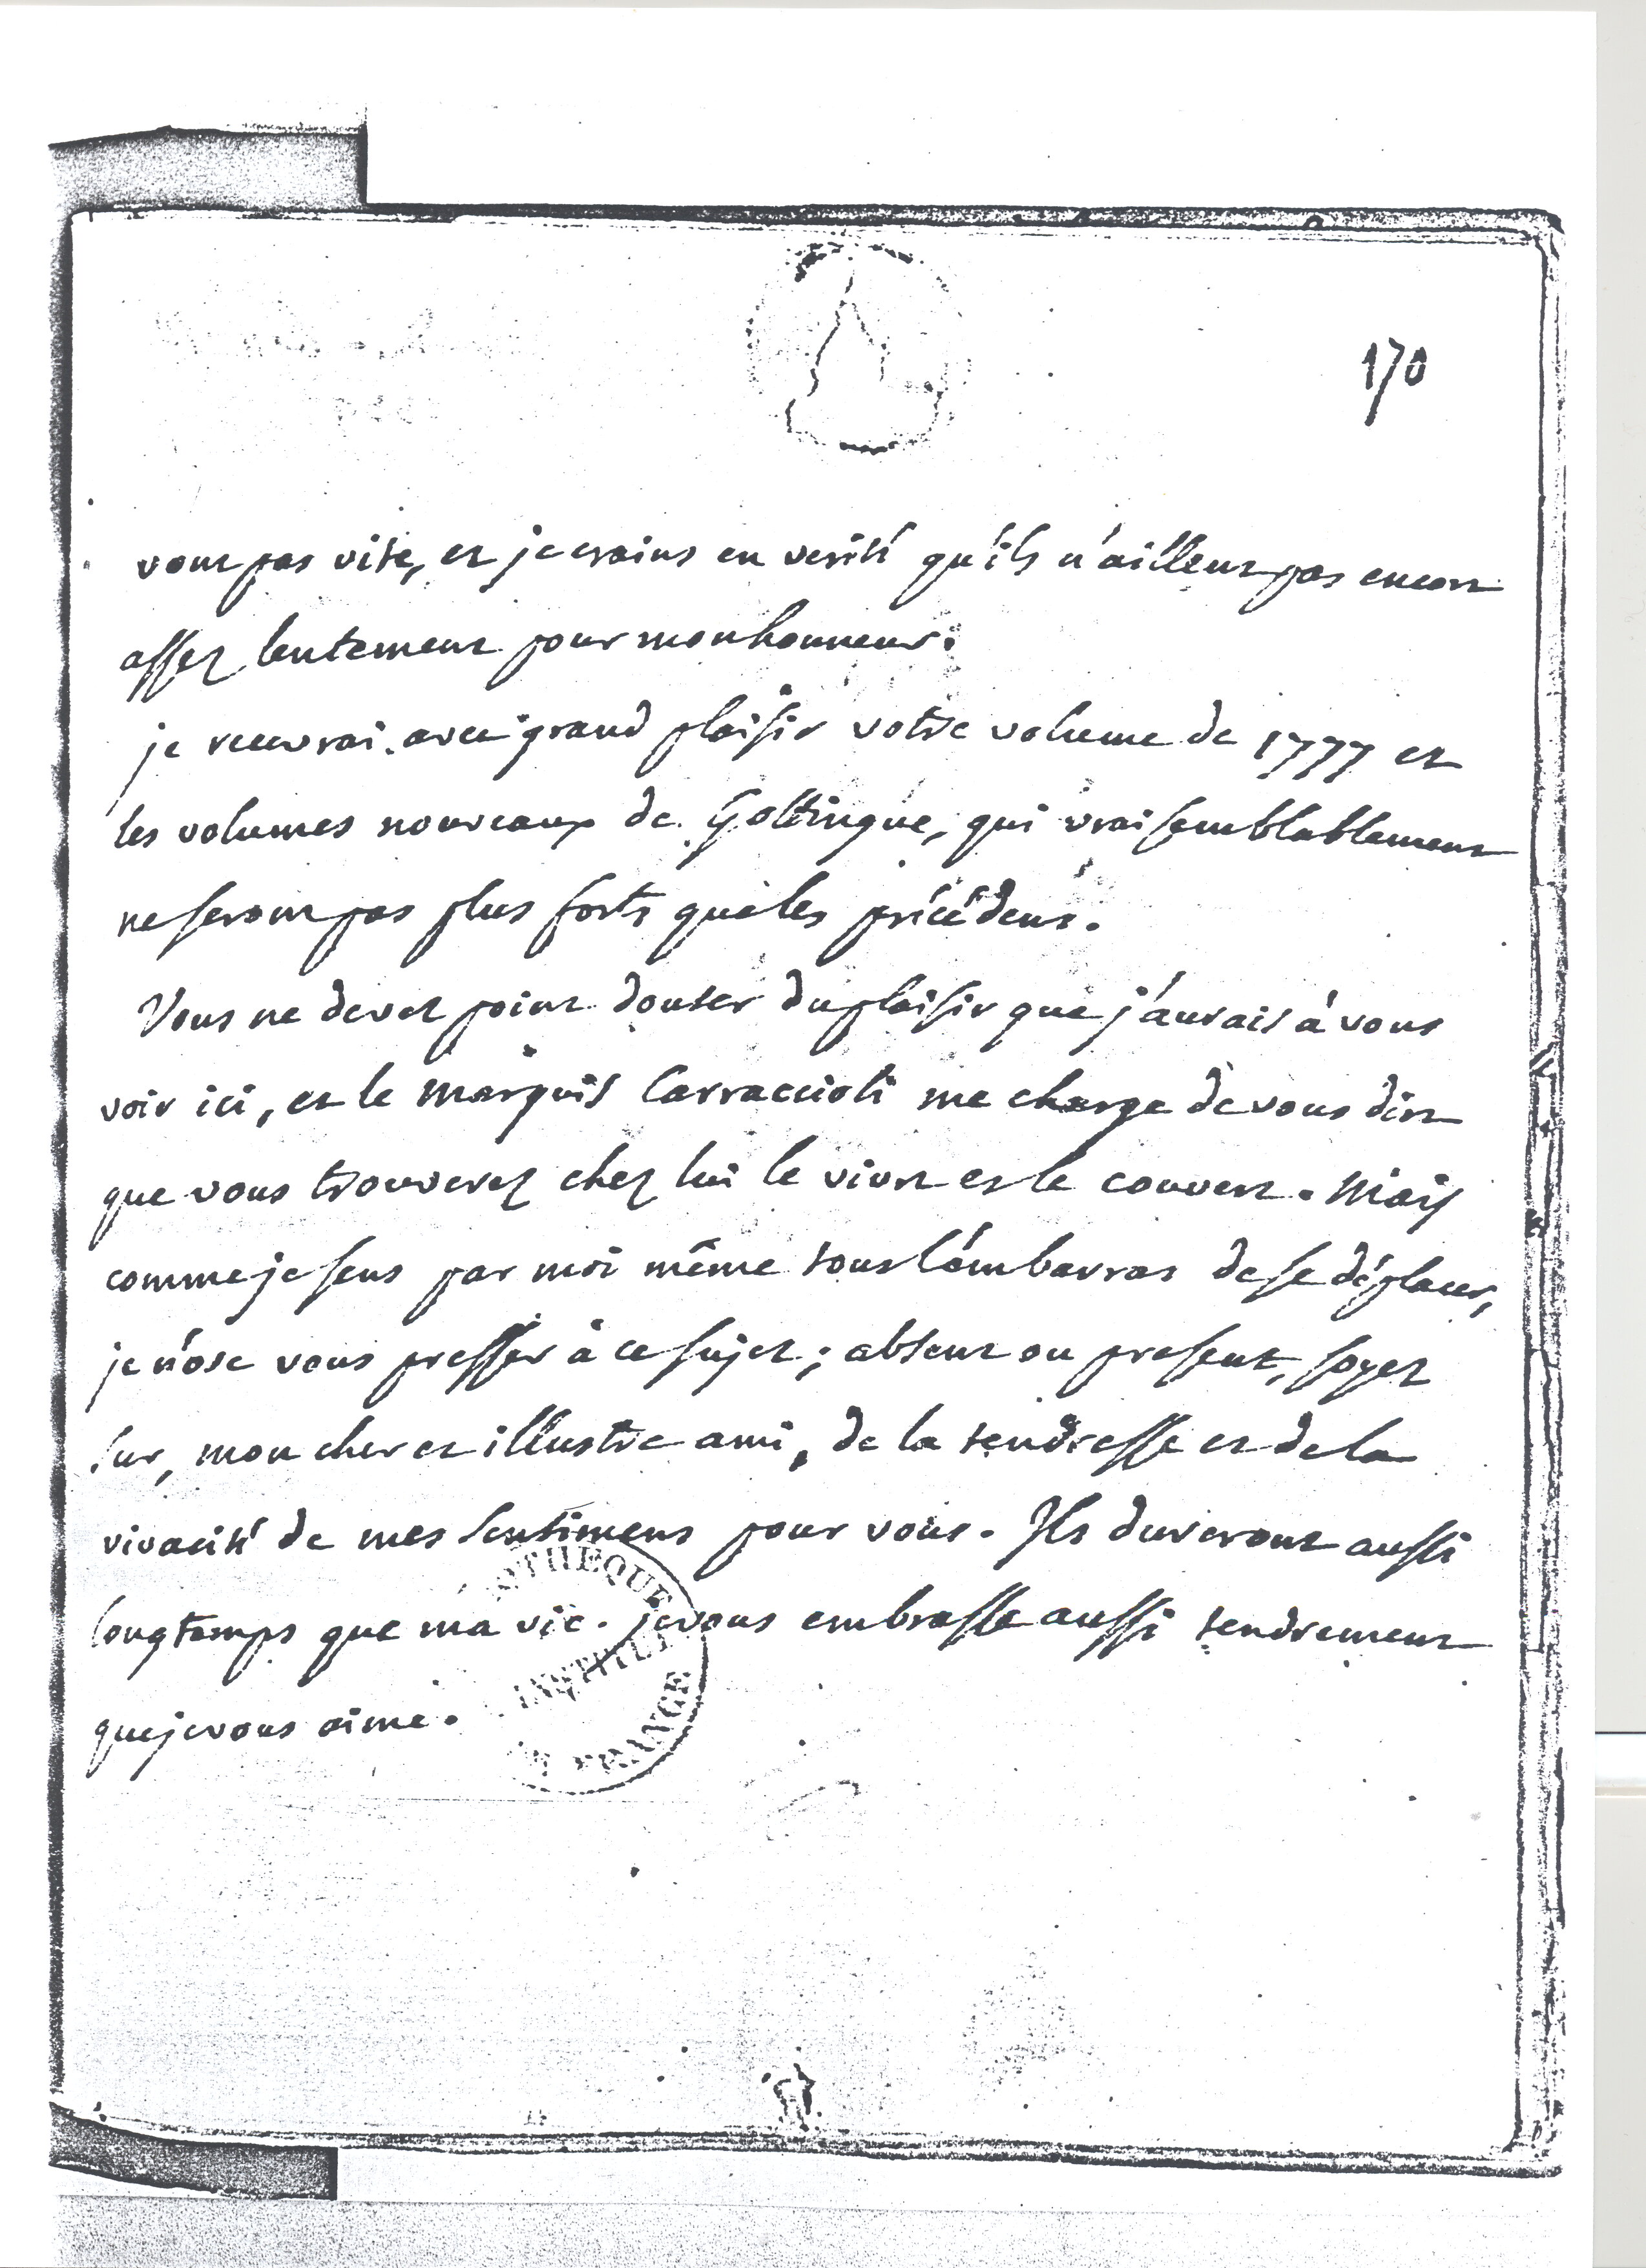 170
vont pas vite, et je crains en verité qu'ils n'aillent pas encore
assez lentement pour mon honneur.
je recevrai avec grand plaisir votre volume de 1777 et
les volumes nouveaux de Gottingue, qui vraisemblablement
ne seront pas plus forts que les précédens.
Vous ne devez point douter du plaisir que j'aurais à vous
voir ici, et le marquis Carraccioli me charge de vous dire
que vous trouverez chez lui le vivre et le couvert. Mais
comme je sens par moi même tout l'embarras de se déplacer,
je n'ose vous presser à ce sujet; absent ou present, soyez
sur, mon cher et illustre ami, de la tendresse et de la
vivacité de mes sentimens pour vous. Ils dureront aussi
longtemps que ma vie. je vous embrasse aussi tendrement
que je vous aime.
INSTITUT
FRANCE